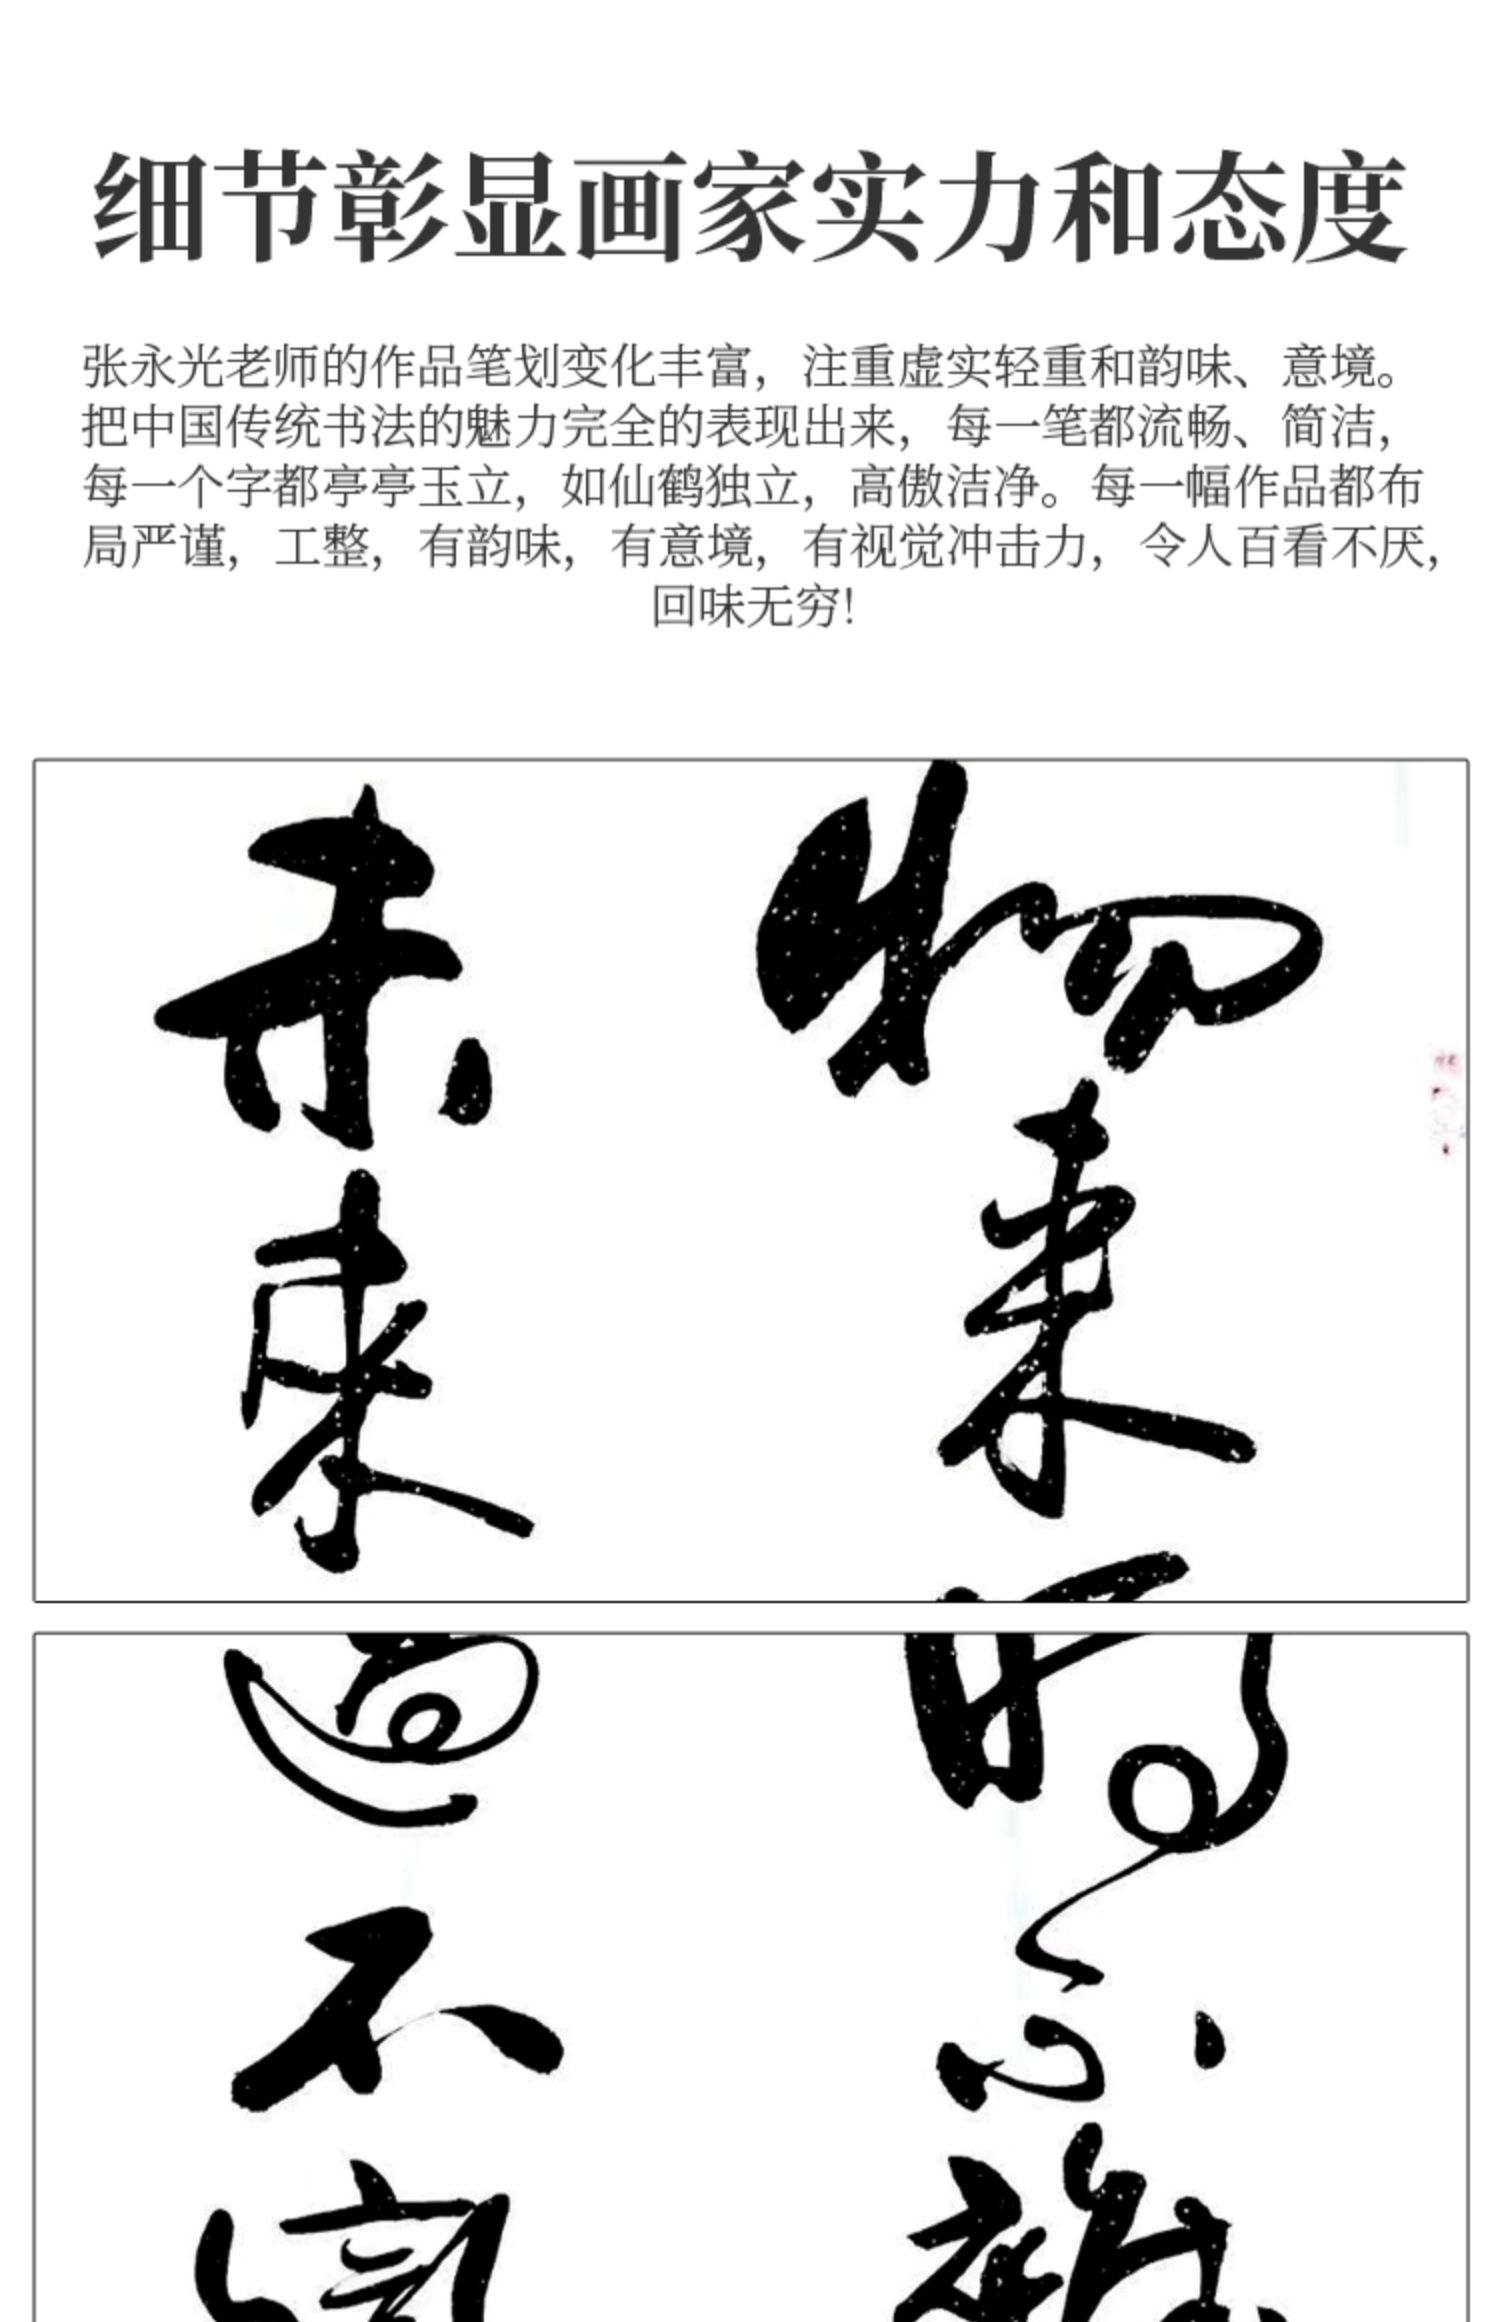 细节彰显画家实力和态度
张永光老师的作品笔划变化丰富，注重虚实轻重和韵味、意境。
把中国传统书法的魅力完全的表现出来，每一笔都流畅、简洁，
每一个字都亭亭玉立，如仙鹤独立，高傲洁净。每一幅作品都布
局严谨，工整，有韵味，有意境，有视觉冲击力，令人百看不厌，
回味无穷！
物来
未來
时不
過不